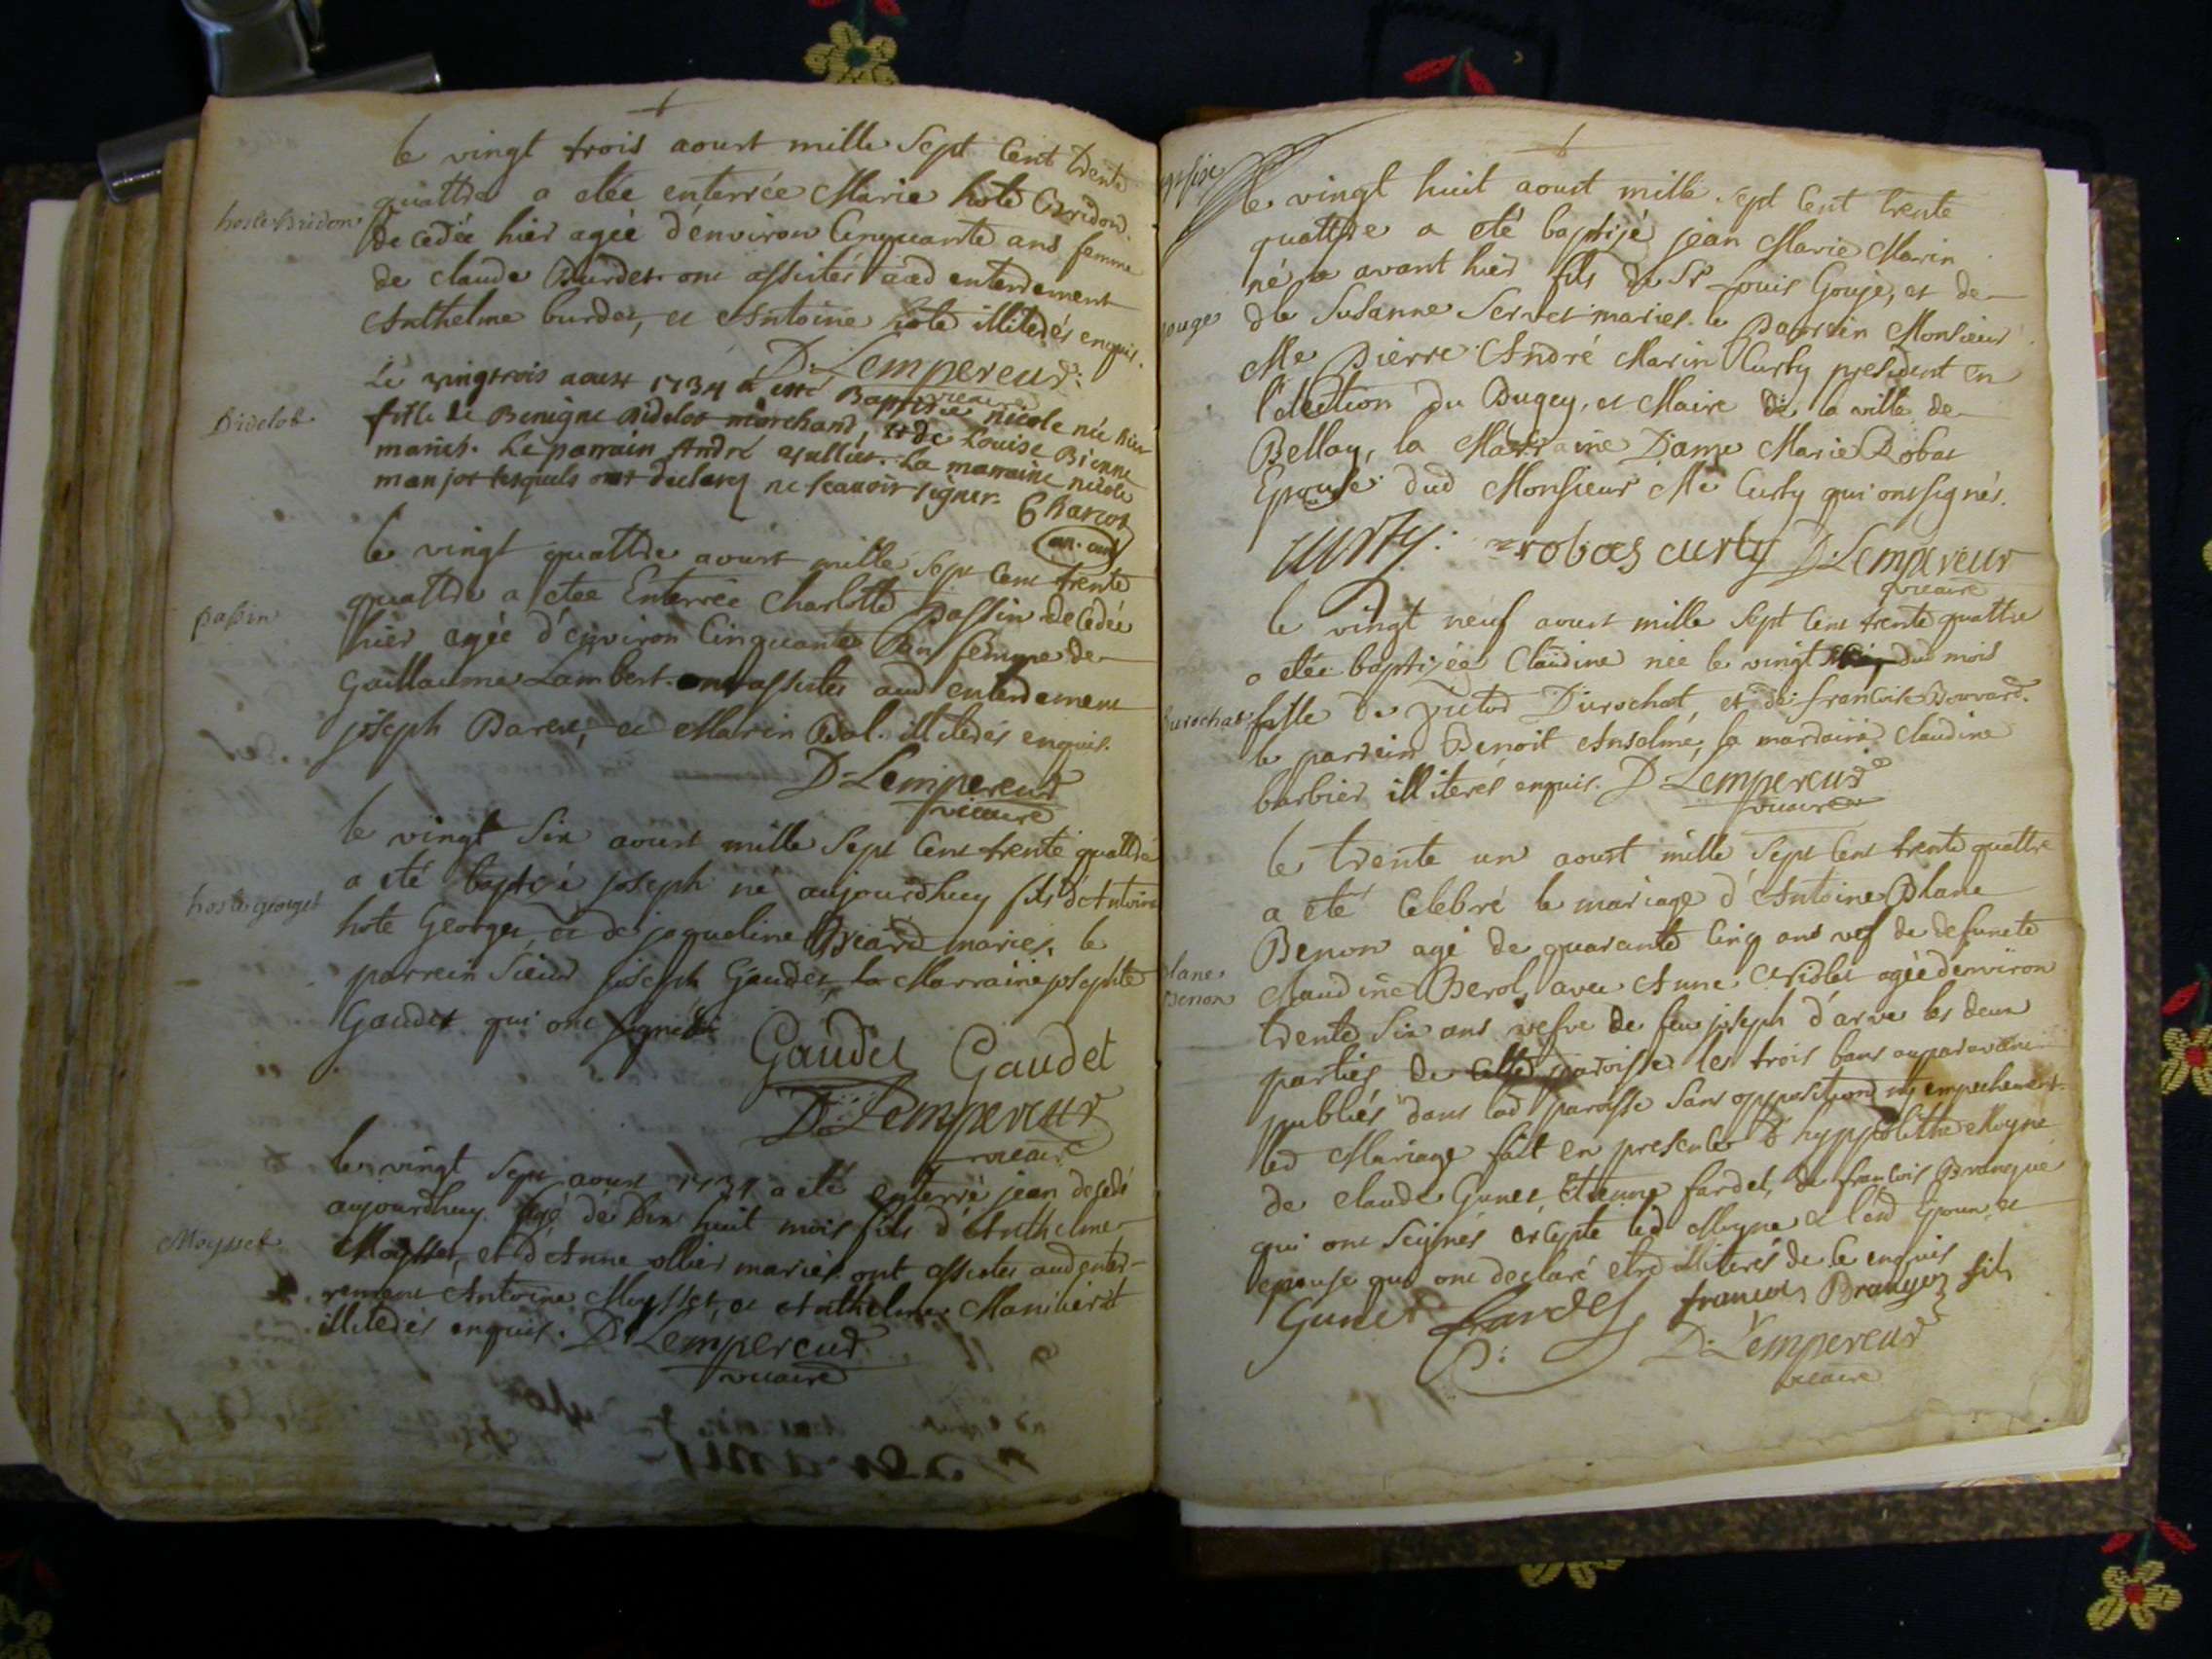 le vingt trois aoust mille Sept Cent trente
hoste Bridon
quattre a etée enterrée Marie hote Bridon
decedée hier agée d'environ Cinquante ans femme
de claude Burdet ont assistés aud enterrement
Anthelme burdet, et Antoine hote illiterés enquis.
D. Lempereur
vicaire
Le vingtrois aoust 1734 a esté Baptisée nicole née hier
Bidelot
fille de Benigne Bidelot marchand, et de Louise Bienne
mariés. Le parrain André La marraine nicole
manjot lesquels ont declaré ne scavoir signer. Charcot
le vingt quattre aoust mille Sept Cent trente
passin
quattre a etée Enterrée Charlotte passin decedée
hier agée d'environ Cinquante ans femme de
Guillaume Lambert. ont assistés aud enterrement
joseph Baret, et Marin Bal. illiterés enquis.
D. Lempereur
vicaire
le vingt Six aoust mille Sept Cent trente quattre
hoste georget
a eté baptisé joseph né aujourdhuy fils d'Antoine
hote Georget, et de jaqueline Briard mariés. le
parrein Sieur joseph Gaudet, la Marraine josephte
Gaudet qui ont signé
Gaudet Gaudet
D. Lempereur
vicaire
le vingt Sept aoust 1734 a eté enterré jean decedé
aujourdhuy agé de Dix huit mois fils d'Anthelme
Moysset
Moysset, et d'Anne ollier mariés ont assistés aud enter-
rement Antoine Moysset, et Anthelme
illiterés enquis. D. Lempereur
vicaire
le vingt huit aoust mille Sept Cent trente
quattre a eté baptisé jean Marie Marin
né avant hier fils de Sr Louis Gouje, et de
ouge
dlle Susanne Servet mariés. le Parrein Monsieur
Me Pierre André Marin Curty president en
l'election du Bugey, et Maire de la ville de
Bellay, la Marraine Dame Marie Robat
Epouse dud Monsieur Me Curty qui ont signés.
curty. robat curty D. Lempereur
vicaire
le vingt neuf aoust mille Sept Cent trente quattre
a etée baptizée Claudine née le vingt dud mois
urochat
fille de victor Durochat, et de francoise Bouvard.
le parrein Benoit Anselme, la marraine Claudine
barbier illiterés enquis. D. Lempereur
vicaire
le trente un aoust mille Sept Cent trente quattre
a eté Celebré le mariage d'Antoine Blanc
Benon agé de quarante Cinq ans vef de defuncte
lanc
Benon
Claudine Berol, avec Anne Violet agée d'environ
trente Six ans vefve de feu joseph d'arve les deux
parties de cette paroisse les trois bans auparavant
publiés dans lad paroisse Sans opposition ni empechement.
led Mariage fait en presence d'hyppolithe Moyne
de claude Gunet, Etienne fardel, de francois Branque
qui ont Seignés excepté led Moyne et lesd Epoux, et
epouse qui ont declaré etre illiterés de ce enquis
Gunet fardel francois Branque fils
D. Lempereur
vicaire